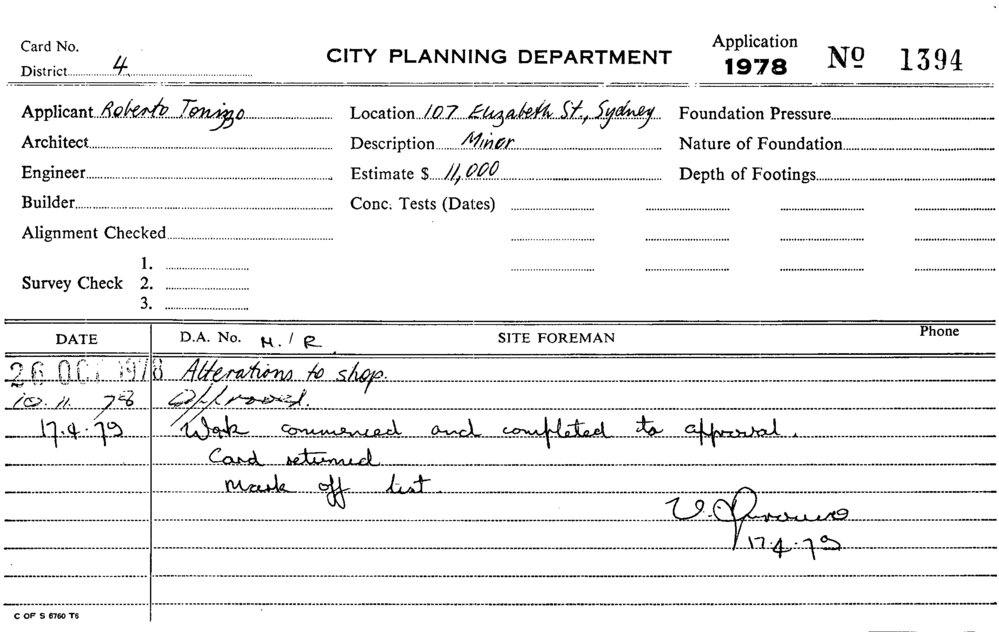 Card No.
District 4
CITY PLANNING DEPARTMENT
Application
1978
Nº 1394
Applicant Roberto Tonizzo
Location 107 Elizabeth St., Sydney
Foundation Pressure
Architect
Description Minor
Nature of Foundation
Engineer
Estimate $ 11,000
Depth of Footings
Builder
Conc. Tests (Dates)
Alignment Checked
Survey Check
1.
2.
3.
DATE
D.A. No. M./R.
SITE FOREMAN
Phone
26 OCT 1978 Alterations to shop.
10.11.78 Approved.
17.4.79 Work commenced and completed to approval.
Card returned
Mark off list.
17.4.79
C OF S 6760 T6